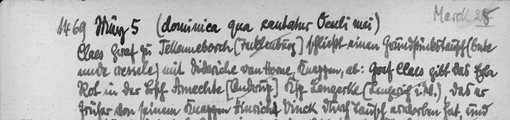 March 5
1469 März 5 (dominica qua cantatur Oculi mei)
Claes Graf zu Tekenneborch [Tecklenburg] schliesst einen Grundstückstausch (bute
unde wessele) mit Dideriche van Horne, Knappen, ab: Graf Claes gibt das Erbe
Rot in der Bsch. Amechte [Andrup] Ksp. Lengerke (Lengerich i. W.), das er
früher von seinem Knappen Hinrich Vinck durch Tausch erworben hat, und